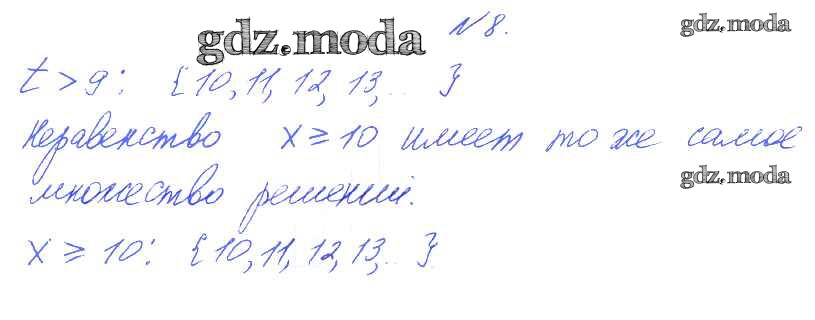 gdz.moda N8. gdz.moda
t > 9: {10, 11, 12, 13, ... }
Неравенство x ≥ 10 имеет то же самое
множество решений. gdz.moda
x ≥ 10: {10, 11, 12, 13, ... }